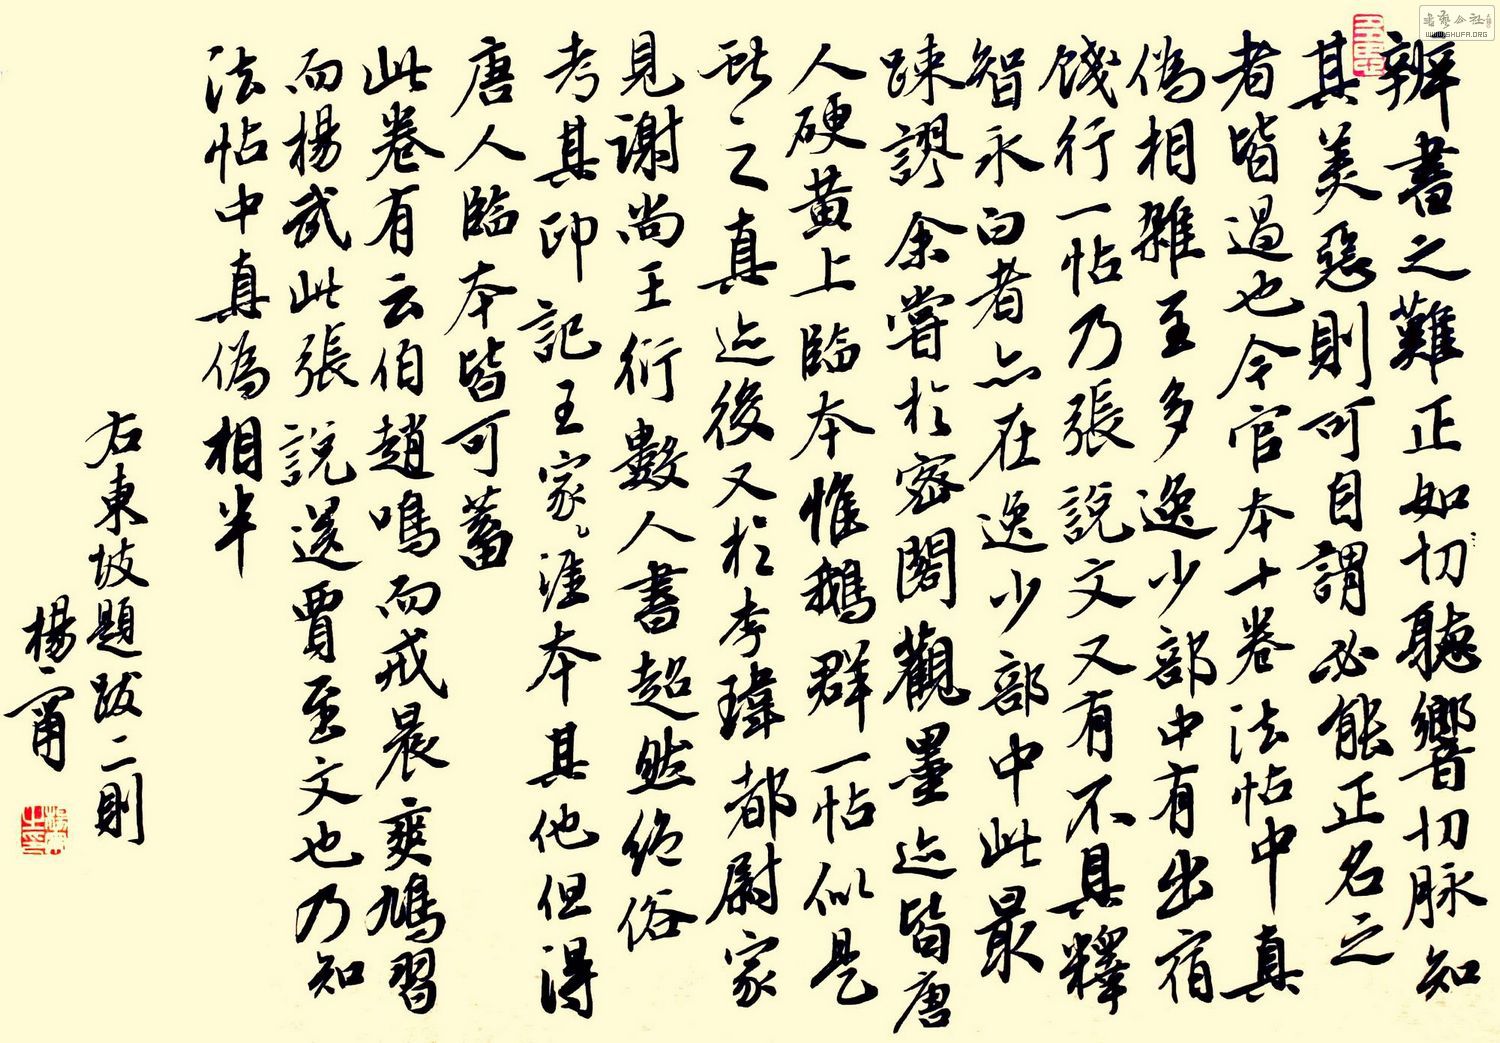 辨書之難正如切聽響切脉知
其美惡則可自謂必能正名之
者皆過也今官本十卷法帖中真
偽相雜至多逸少部中有出宿
餞行一帖乃張說文又有不具釋
智永白者亦在逸少部中此最
疎謬余嘗於密閣觀墨迹皆唐
人硬黃上臨本惟鵝群一帖似是
獻之真迹後又於李瑋都尉家
見謝尚王衍數人書超然絕俗
考其印記王家涯本其他但得
唐人臨本皆可蓄
此卷有云伯趙鳴而戒晨爽鳩習
而楊武此張說送賈至文也乃知
法帖中真偽相半
右東坡題跋二則
楊
書藝公社
WWW.SHUFA.ORG